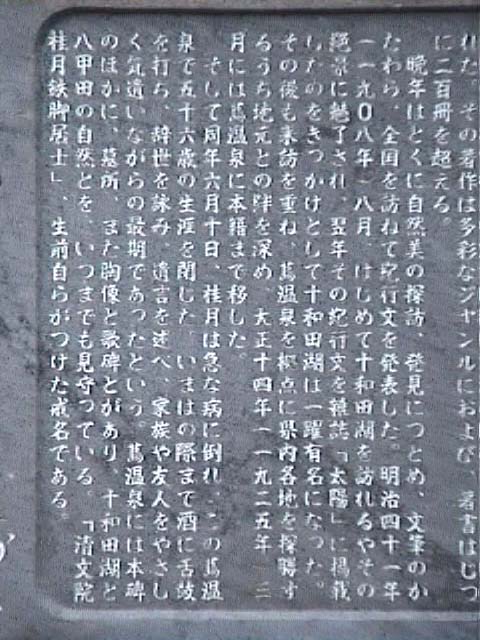 れた。その著作は多彩なジャンルにおよび、著書はじつ
に二百冊を超える。
晩年はとくに自然美の探訪、発見につとめ、文筆のか
たわら、全国を訪ねて紀行文を発表した。明治四十一年
(一九〇八年)八月、はじめて十和田湖を訪れるやその
絶景に魅了され、翌年その紀行文を雑誌「太陽」に掲載
したのをきっかけとして十和田湖は一躍有名になった。
その後も来訪を重ね、蔦温泉を拠点に県内各地を探勝す
るうち地元との絆を深め、大正十四年(一九二五年)三
月には蔦温泉に本籍まで移した。
そして同年六月十日、桂月は急な病に倒れ、この蔦温
泉で五十六歳の生涯を閉じた。いまはの際まで酒に舌鼓
を打ち、辞世を詠み、遺言を述べ、家族や友人をやさし
く気遣いながらの最期であったという。蔦温泉には本碑
のほかに、墓所、また胸像と歌碑とがあり、十和田湖と
八甲田の自然とを、いつまでも見守っている。「清文院
桂月鉄脚居士」、生前自らがつけた戒名である。